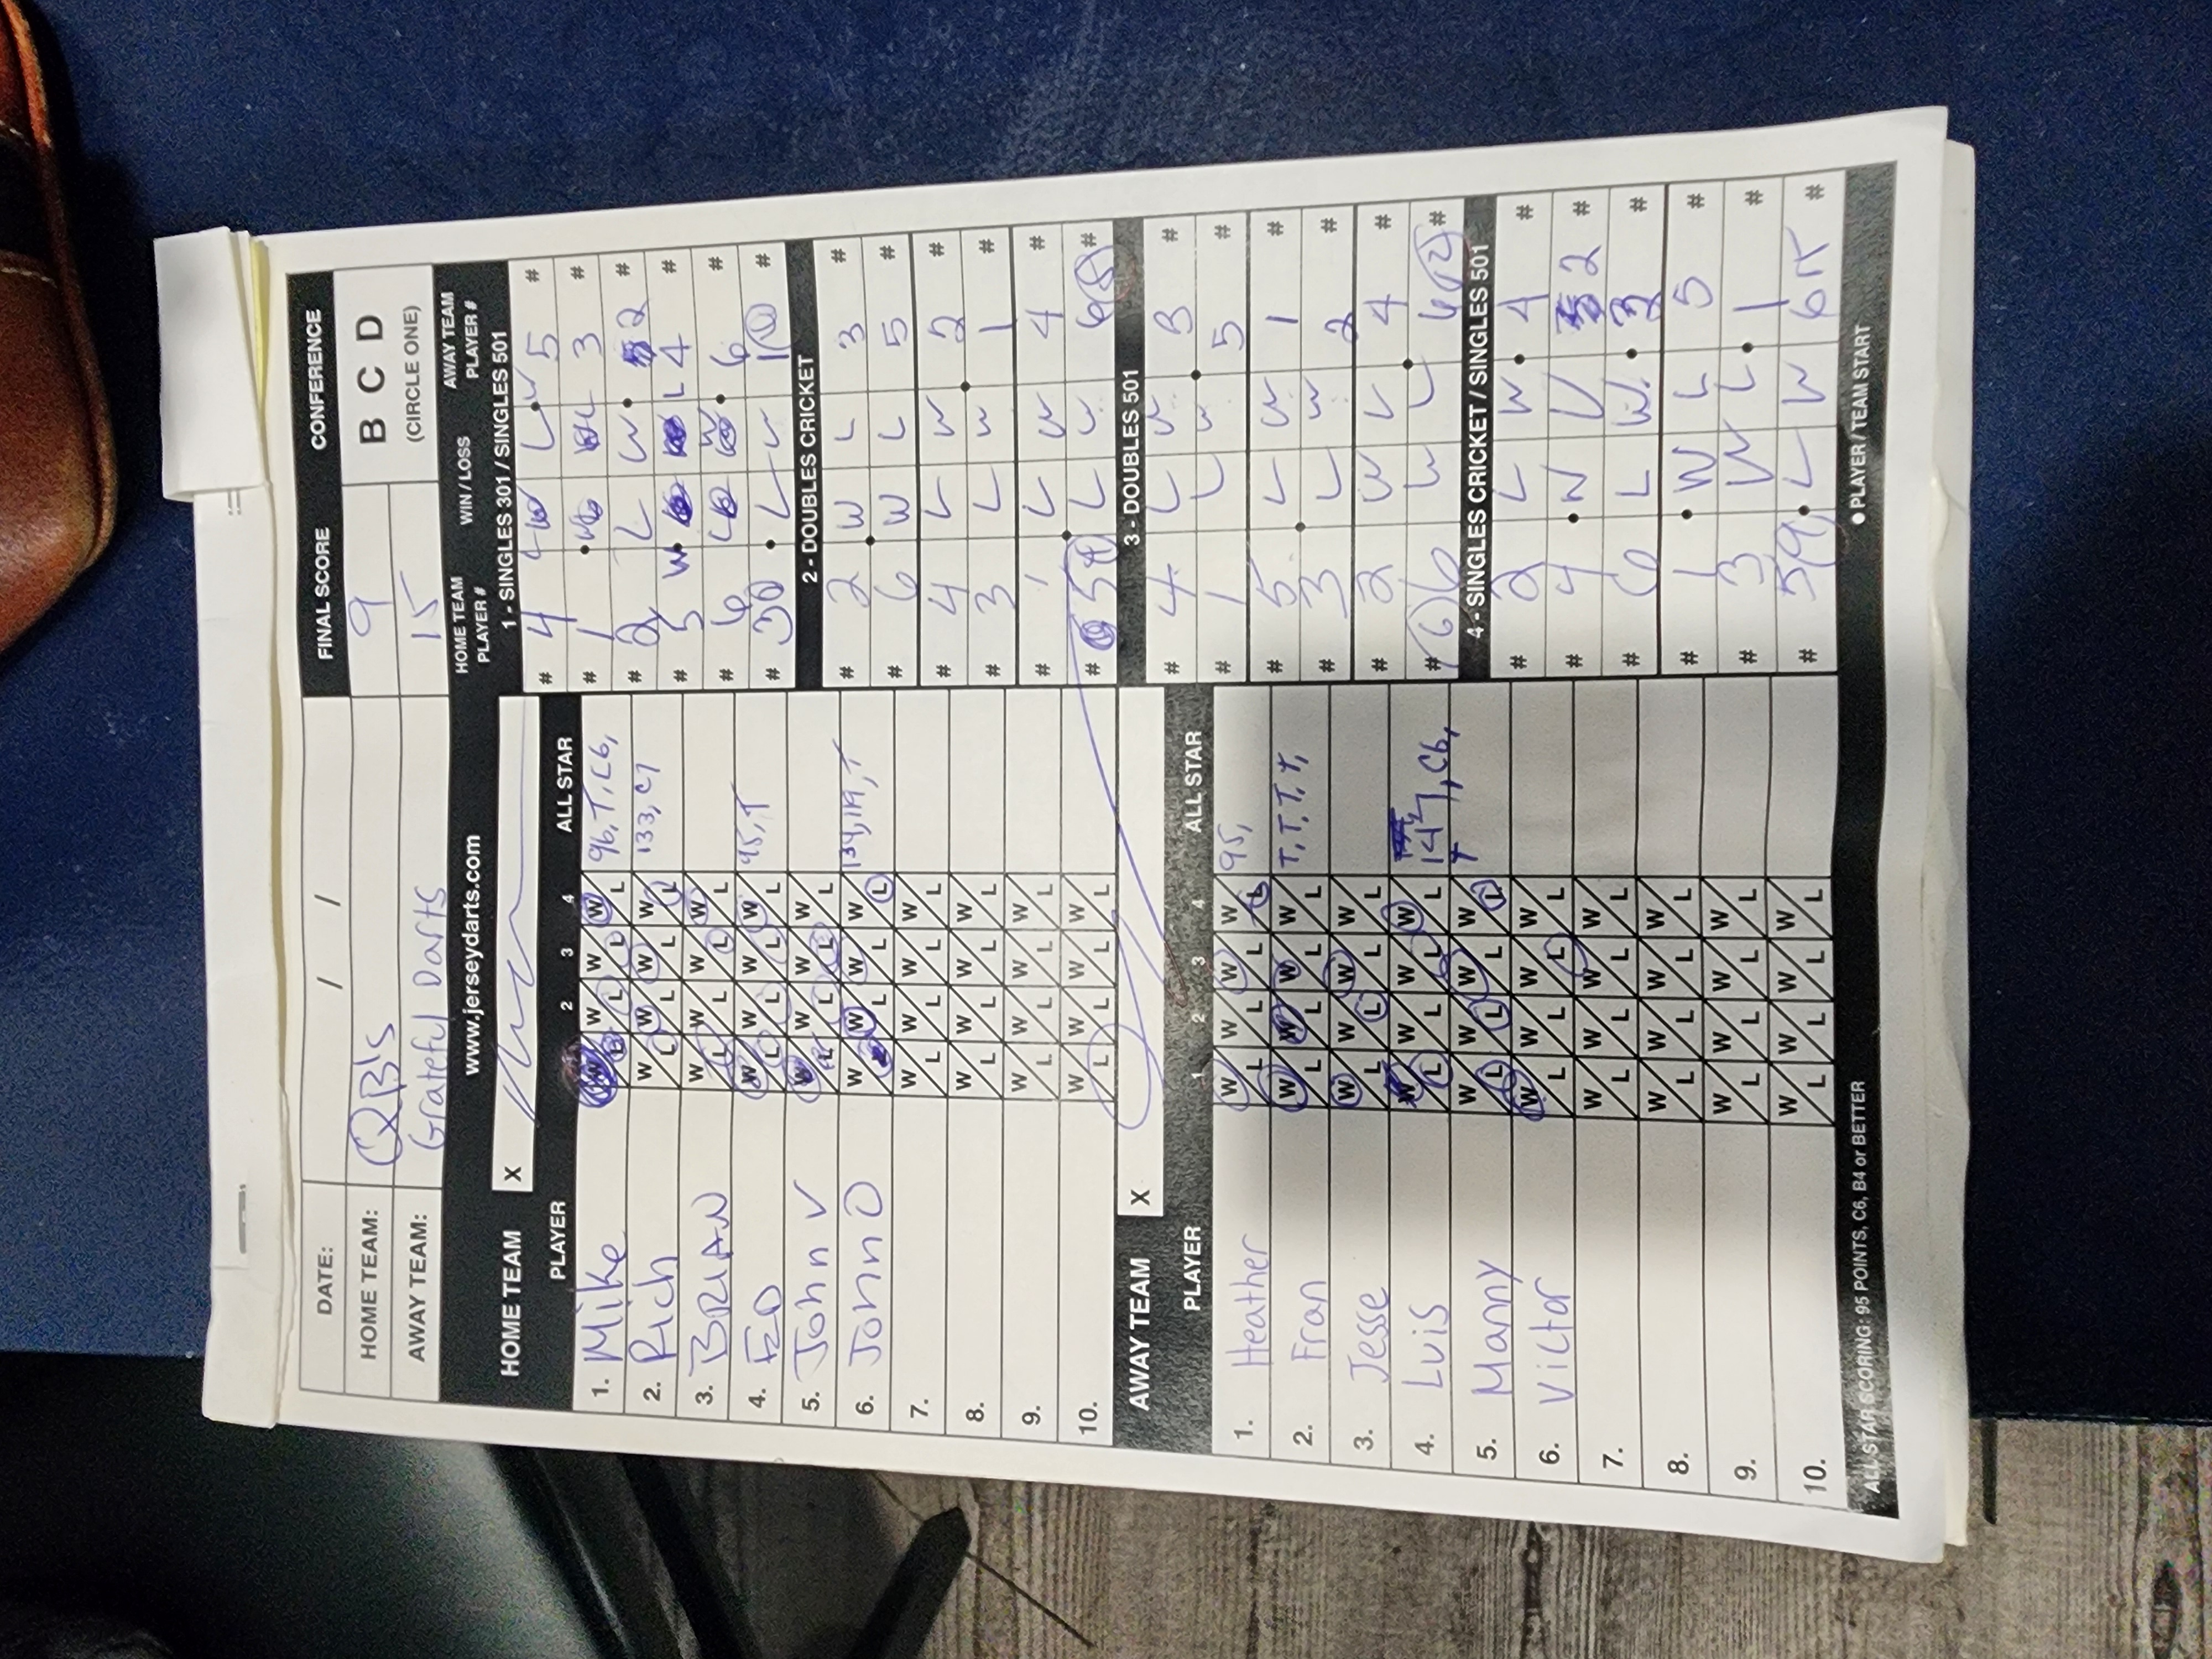 DATE: / /
FINAL SCORE CONFERENCE
HOME TEAM: QB's 9 B C D
AWAY TEAM: Grateful Darts 15 (CIRCLE ONE)
www.jerseydarts.com
HOME TEAM PLAYER # WIN / LOSS AWAY TEAM PLAYER #
HOME TEAM X
PLAYER 1 2 3 4 ALL STAR
1. Mike W L W L W L W L 96, T, C6,
2. Rich W L W L W L W L 133, C7
3. BRIAN W L W L W L W L
4. ED W L W L W L W L 95, T
5. John V W L W L W L W L
6. John O W L W L W L W L 134, 119, T
7. W L W L W L W L
8. W L W L W L W L
9. W L W L W L W L
10. W L W L W L W L
AWAY TEAM X
PLAYER 1 2 3 4 ALL STAR
1. Heather W L W L W L W L 95,
2. Fran W L W L W L W L T, T, T, T,
3. Jesse W L W L W L W L
4. Luis W L W L W L W L C6,
5. Manny W L W L W L W L
6. Victor W L W L W L W L
7. W L W L W L W L
8. W L W L W L W L
9. W L W L W L W L
10. W L W L W L W L
1 - SINGLES 301 / SINGLES 501
# 4 L W 5 #
# 1 L 3 #
# 2 L W 2 #
# 5 W L 4 #
# 6 L W 6 #
# L W #
2 - DOUBLES CRICKET
# 2 W L 3 #
# 6 W L 5 #
# 4 L W 2 #
# 3 L W 1 #
# 1 L W 4 #
# 5 L W 6 #
3 - DOUBLES 501
# 4 L W 3 #
# 1 L W 5 #
# 5 L W 1 #
# 3 L W 2 #
# 2 W L 4 #
# 6 W L 6 #
4 - SINGLES CRICKET / SINGLES 501
# 2 L W 4 #
# 4 W L 2 #
# 6 L W 3 #
# 1 W L 5 #
# 3 W L 1 #
# 5 9 L W 6 #
ALL STAR SCORING: 95 POINTS, C6, B4 or BETTER ● PLAYER / TEAM START